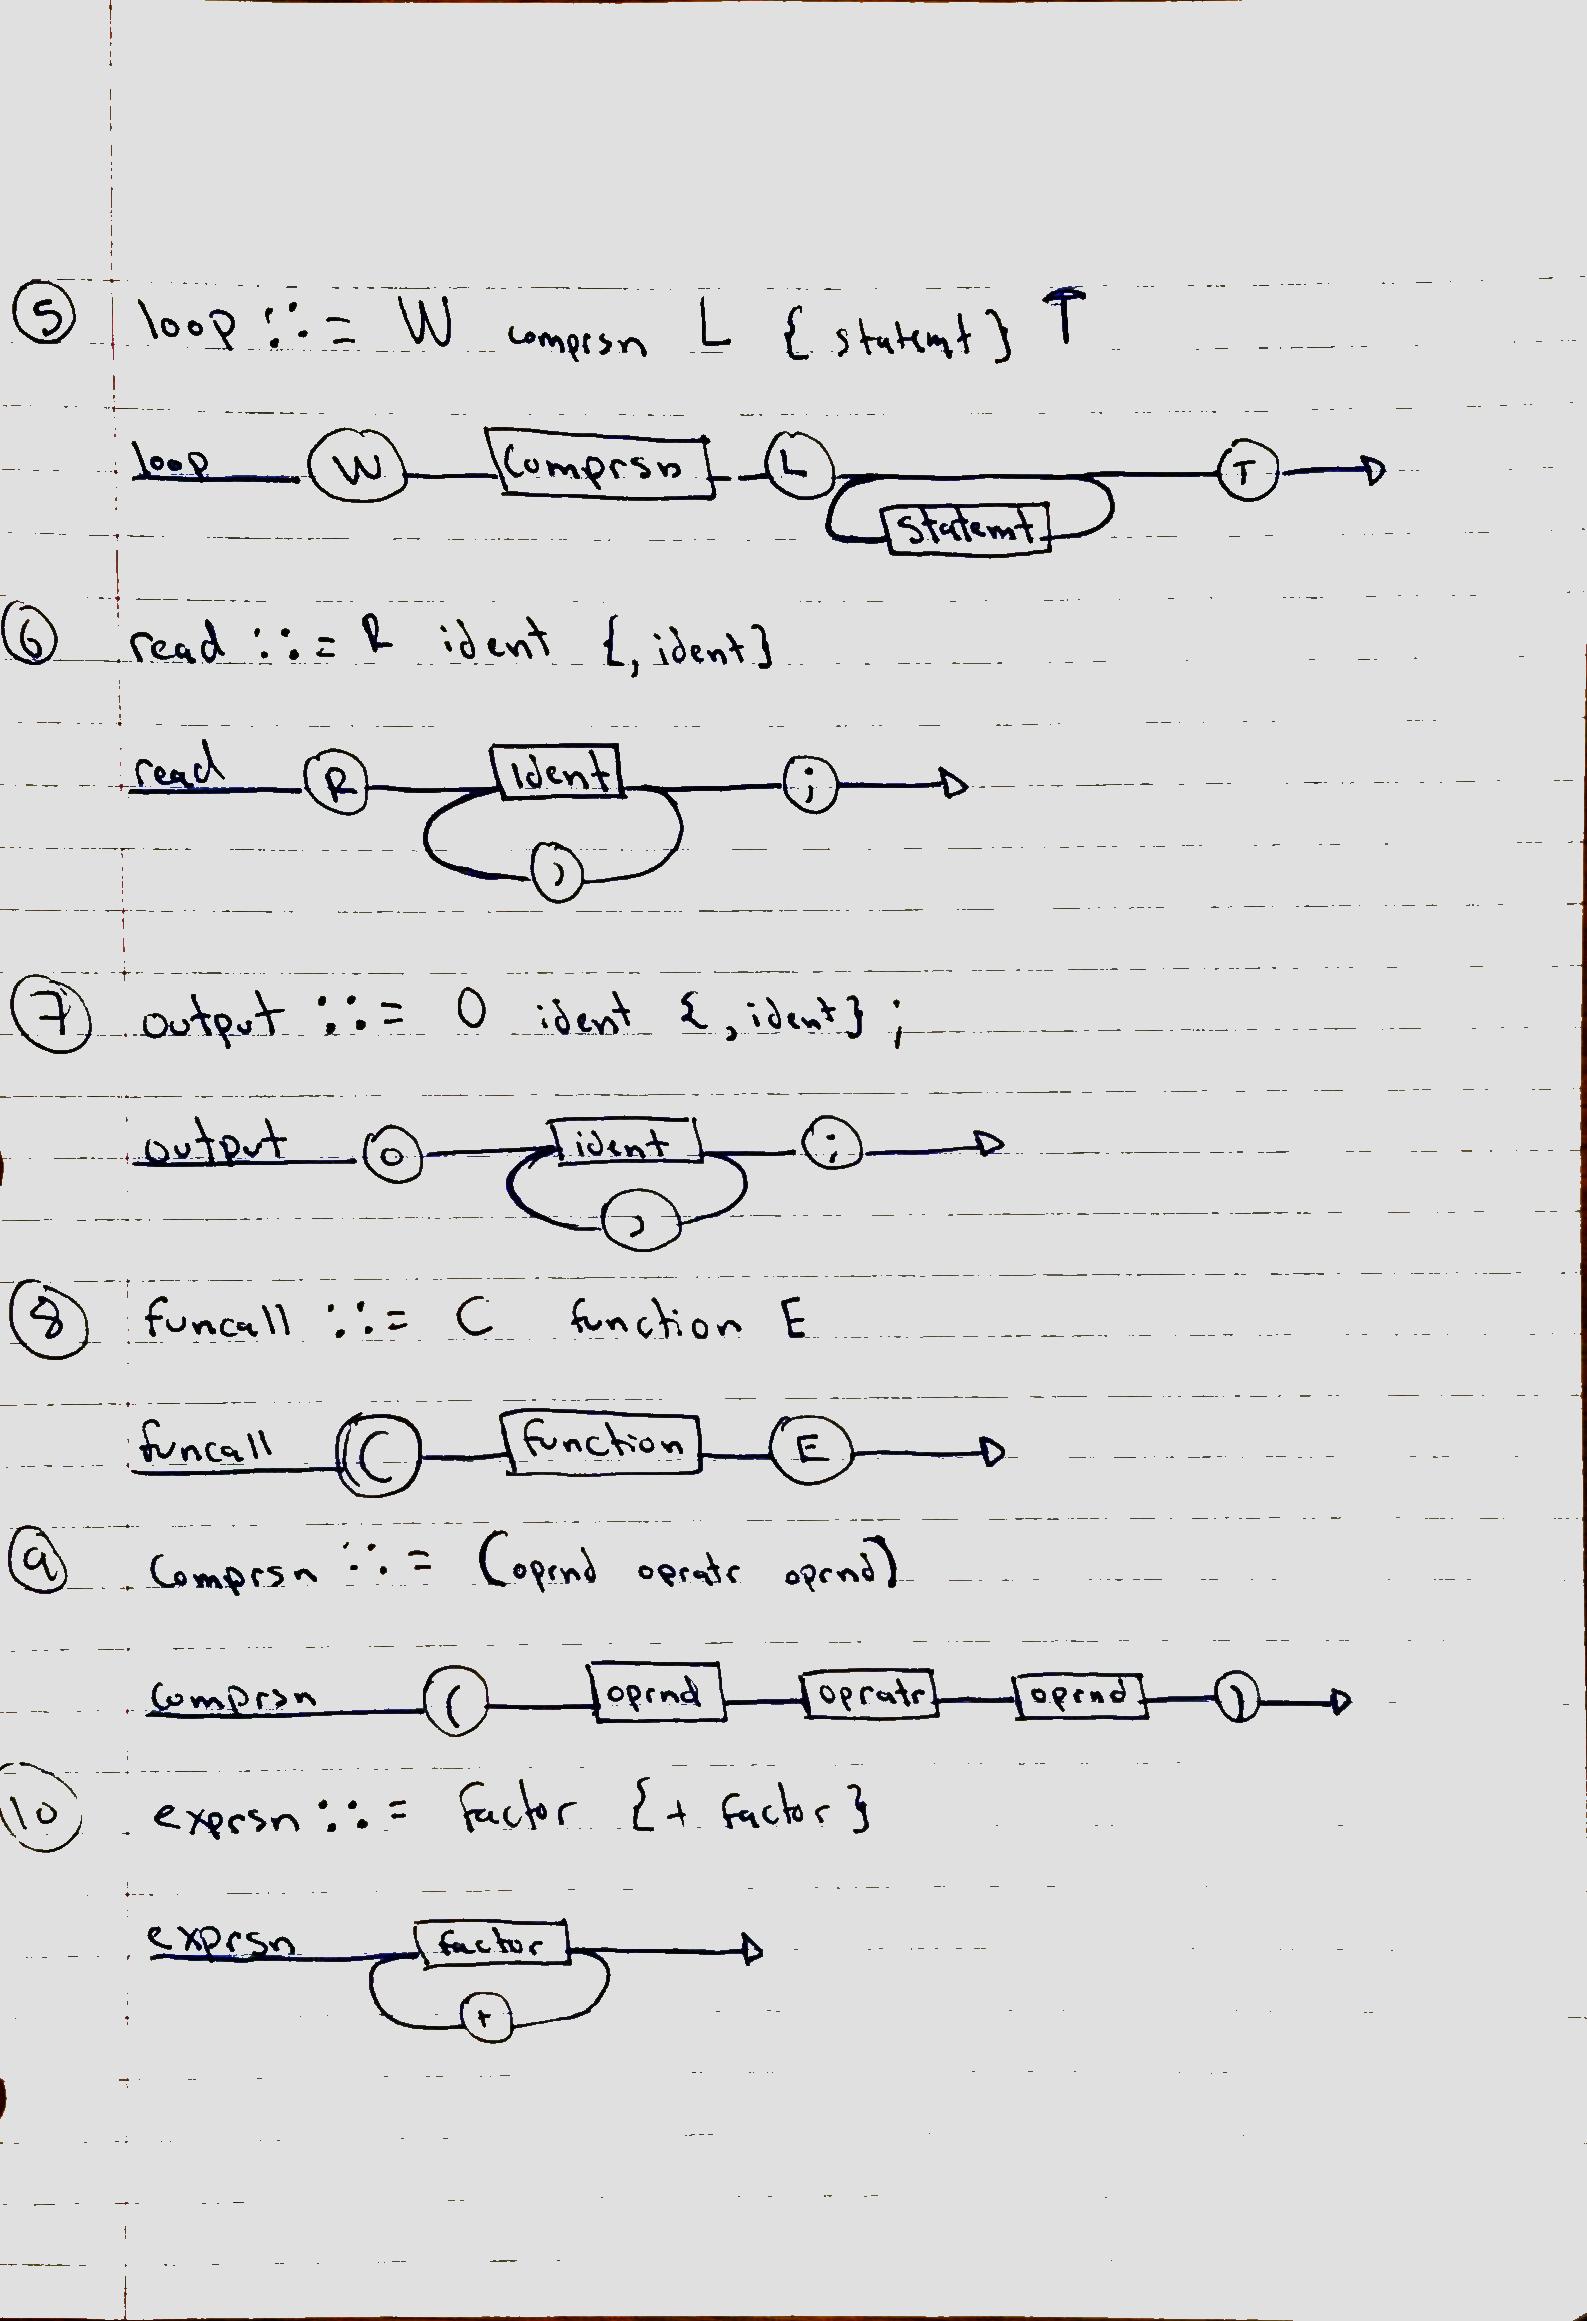 5 loop ::= W comprsn L { statemt } T
loop W Comprsn L T
statemt
6 read ::= R ident {, ident}
read R ident ;
,
7 output ::= O ident {, ident} ;
output O ident ;
,
8 funcall ::= C function E
funcall C function E
9 Comprsn ::= (oprnd opratr oprnd)
Comprsn ( oprnd opratr oprnd )
10 exprsn ::= factor {+ factor}
exprsn factor
+